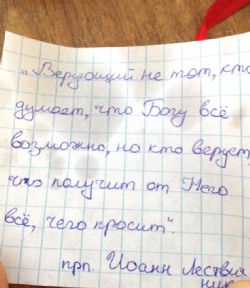 „Верующий не тот, кто
думает, что Богу всё
возможно, но кто верует,
что получит от Него
всё, чего просит".
прп. Иоанн Лествич